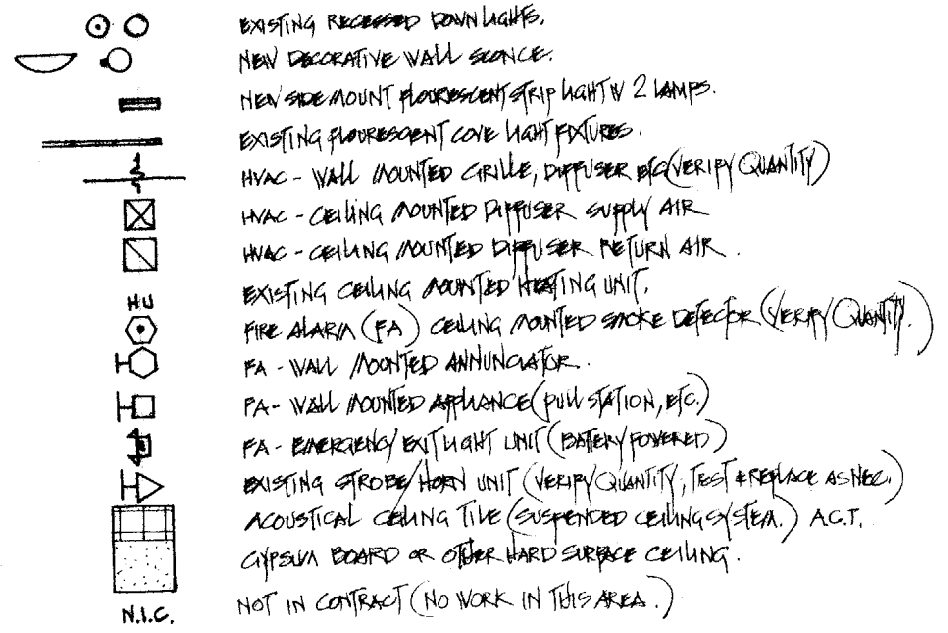 EXISTING RECESSED DOWNLIGHTS.
NEW DECORATIVE WALL SCONCE.
NEW SIDE MOUNT FLOURESCENT STRIP LIGHT W 2 LAMPS.
EXISTING FLOURESCENT COVE LIGHT FIXTURES.
HVAC - WALL MOUNTED GRILLE, DIFFUSER ETC (VERIFY QUANTITY)
HVAC - CEILING MOUNTED DIFFUSER SUPPLY AIR
HVAC - CEILING MOUNTED DIFFUSER RETURN AIR.
HU EXISTING CEILING MOUNTED HEATING UNIT.
FIRE ALARM (FA) CEILING MOUNTED SMOKE DETECTOR (VERIFY QUANTITY.)
FA - WALL MOUNTED ANNUNCIATOR.
FA - WALL MOUNTED APPLIANCE (PULL STATION, ETC.)
FA - EMERGENCY/EXIT LIGHT UNIT (BATERY POWERED)
EXISTING STROBE/HORN UNIT (VERIFY QUANTITY, TEST & REPLACE AS NEC.)
ACOUSTICAL CEILING TILE (SUSPENDED CEILING SYSTEM.) A.C.T.
GYPSUM BOARD OR OTHER HARD SURFACE CEILING.
N.I.C. NOT IN CONTRACT (NO WORK IN THIS AREA.)